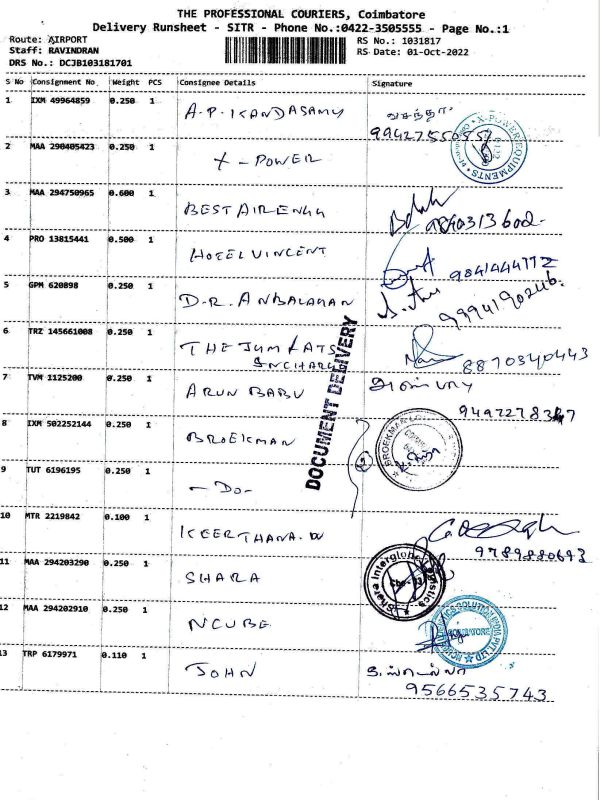 THE PROFESSIONAL COURIERS, Coimbatore
Delivery Runsheet - SITR - Phone No.:0422-3505555 - Page No.:1
Route: AIRPORT
RS No.: 1031817
Staff: RAVINDRAN
RS Date: 01-Oct-2022
DRS No.: DCJB103181701
S No Consignment No Weight PCS Consignee Details Signature
1 IXM 49964859 0.250 1 A.P. KANDASAMY வசந்தா
2 MAA 290405423 0.250 1 X-POWER X-POWER EQUIPMENTS
3 MAA 294750965 0.600 1 BEST AIRENGG 9840313602
4 PRO 13815441 0.500 1 HOTEL VINCENT 9841444772
5 GPM 620898 0.250 1 D.R. ANBALAHAN 9994190246
6 TRZ 145661008 0.250 1 THE JUMKATS
INCHARGE 8870340443
7 TVM 1125200 0.250 1 ARUN BABU
8 IXM 502252144 0.250 1 BROEKMAN BROEKMAN
9 TUT 6196195 0.250 1 -DO-
DOCUMENT DELIVERY
10 MTR 2219842 0.100 1 KEERTHANA.W 9789880693
11 MAA 294203290 0.250 1 SHARA Shara Interglobe Logistics
12 MAA 294202910 0.250 1 NCUBE COIMBATORE
13 TRP 6179971 0.110 1 JOHN
9566535743